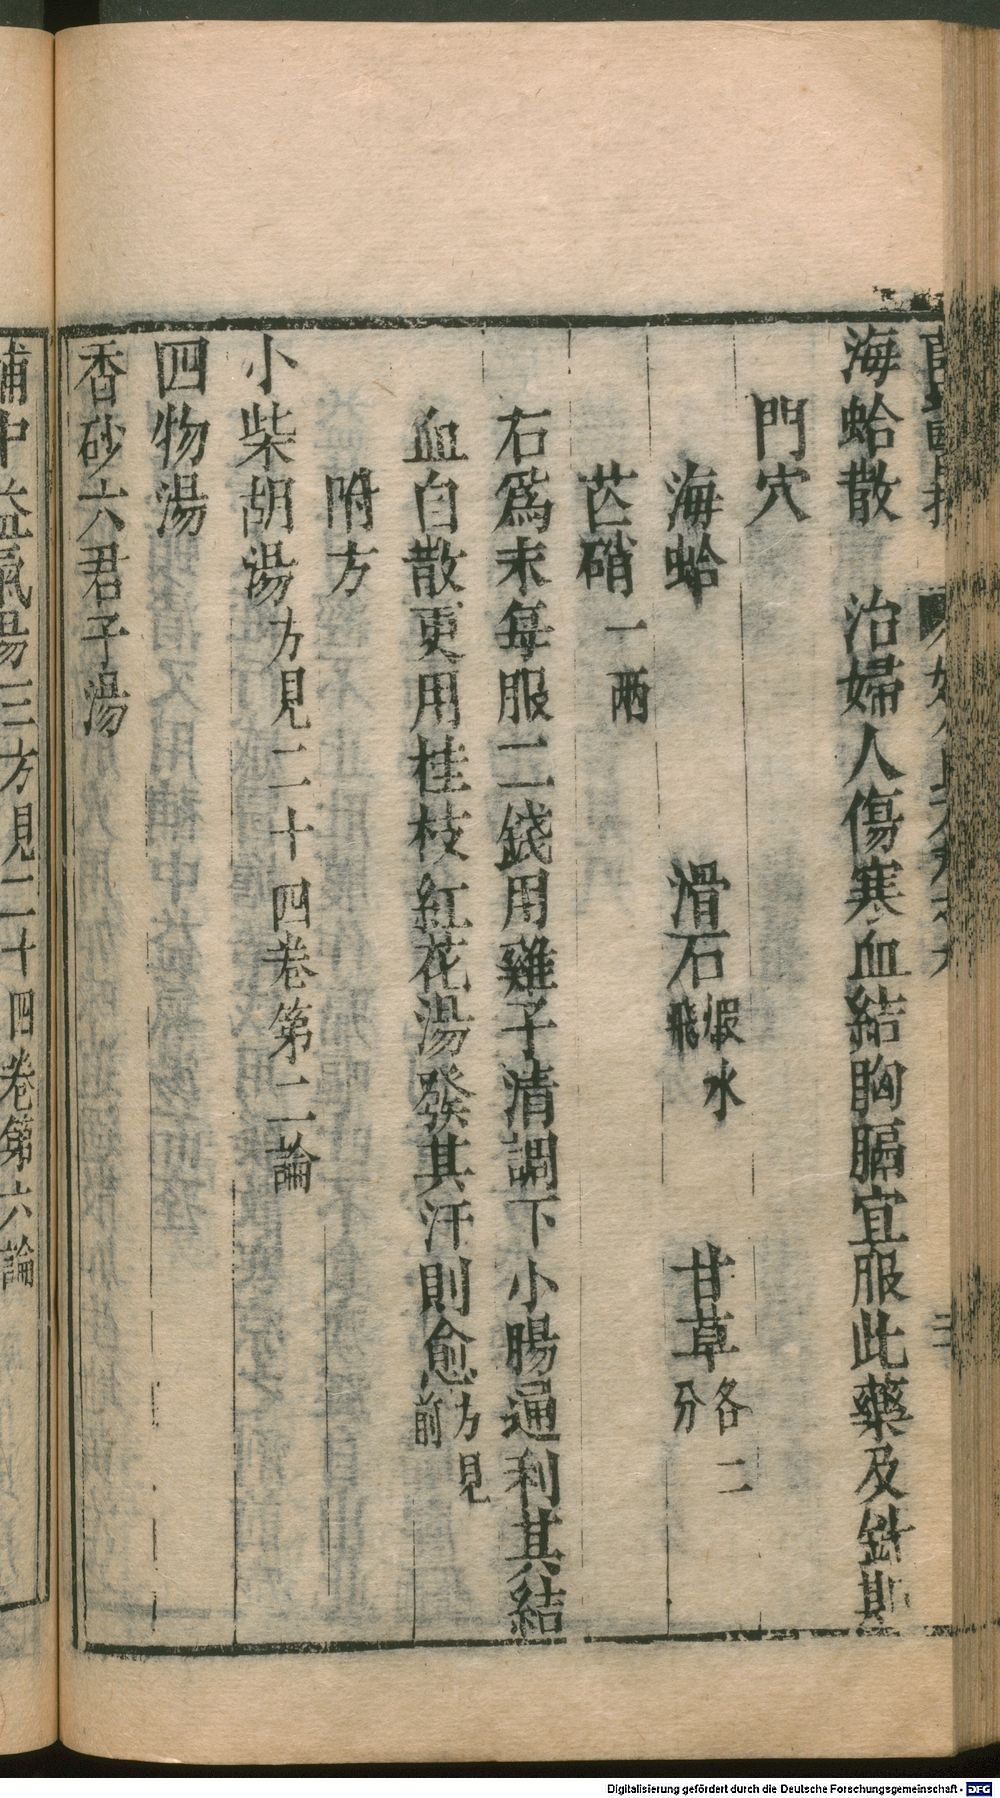 海蛤散　治婦人傷寒血結胸膈宜服此藥及針期
門穴
海蛤　滑石煆水飛　甘草各二分
芒硝一兩
右爲末每服二錢用雞子清調下小腸通利其結
血自散更用桂枝紅花湯發其汗則愈方見前
附方
小柴胡湯方見二十四卷第二論
四物湯
香砂六君子湯
補中益氣湯三方見二十四卷第六論
Digitalisierung gefördert durch die Deutsche Forschungsgemeinschaft - DFG